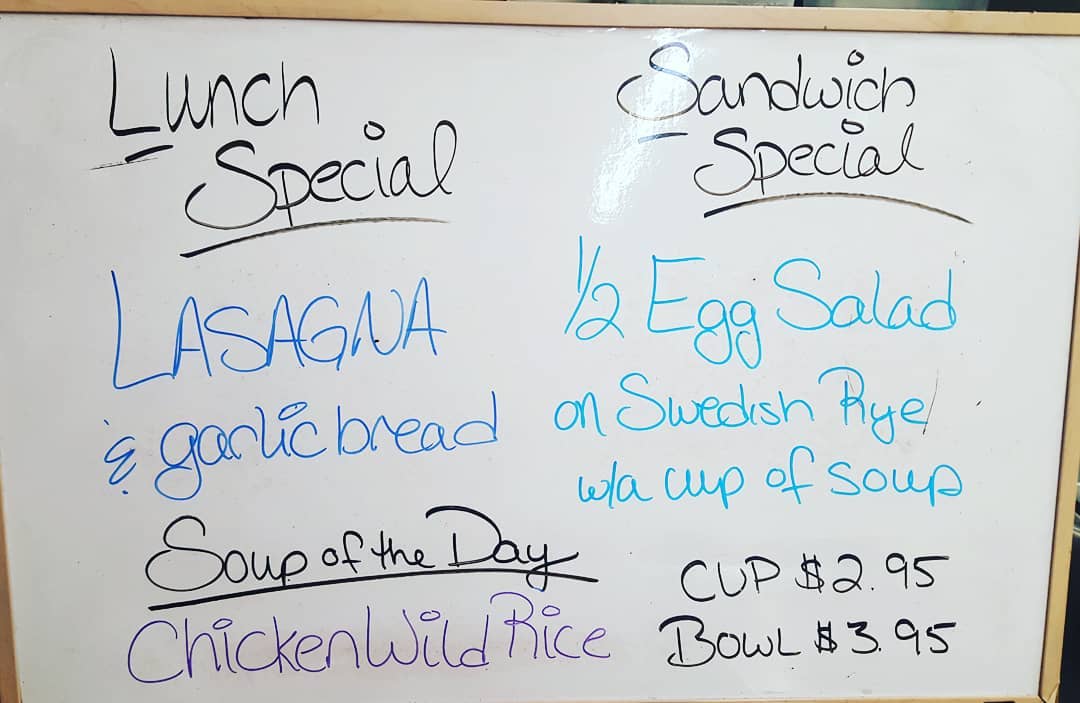 Lunch
Special
LASAGNA
& garlic bread
Sandwich
Special
1/2 Egg Salad
on Swedish Rye
w/a cup of soup
Soup of the Day
Chicken Wild Rice
CUP $2.95
BOWL $3.95